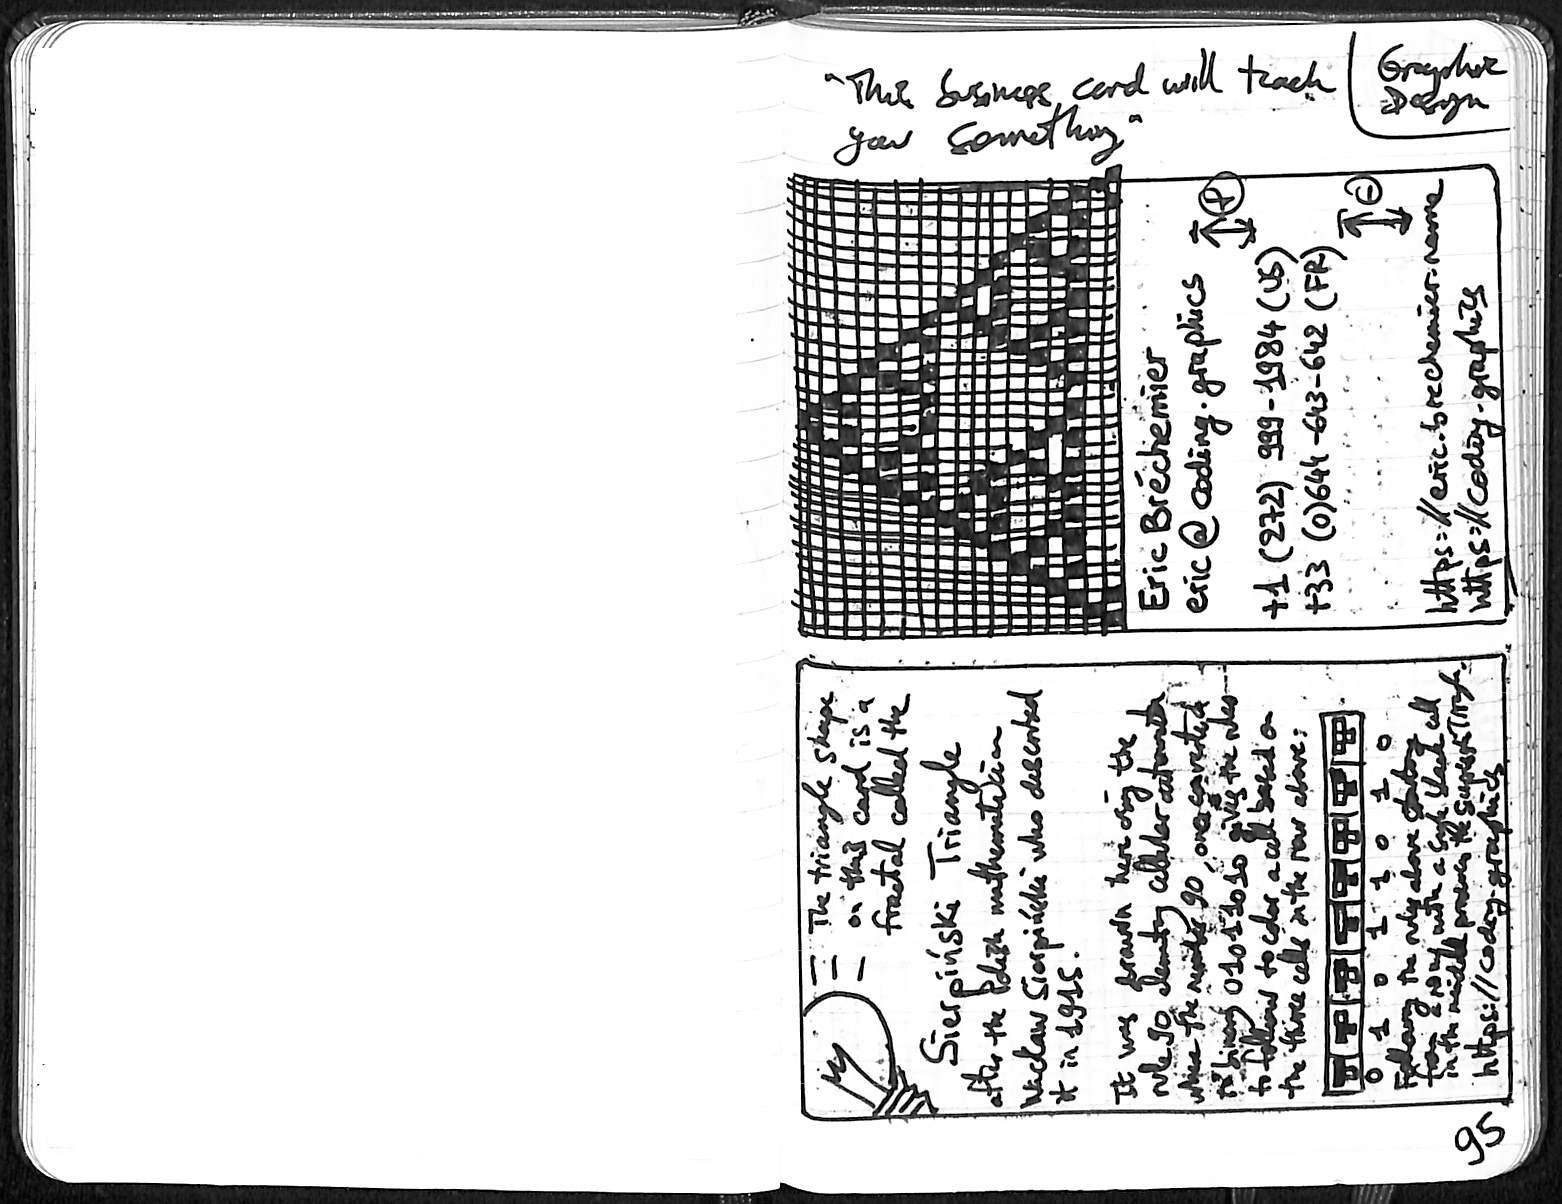 "This business card will teach
you something"
Graphic
Design
Eric Bréchemier
eric@coding.graphics
+1 (272) 999-1984 (US)
+33 (0)644-643-642 (FR)
https://eric.brechemier.name
https://coding.graphics
The triangle shape
on this card is a
fractal called the
Sierpiński Triangle
after the Polish mathematician
Wacław Sierpiński who described
it in 1915.
It was drawn here using the
rule 90 elementary cellular automaton
where the number 90, once converted
to binary 01011010 gives the rules
to follow to color a cell based on
the three cells in the row above:
0 1 0 1 1 0 1 0
Following the rules above starting
from a row with a single black cell
in the middle produces the Sierpiński Triangle.
https://coding.graphics
95